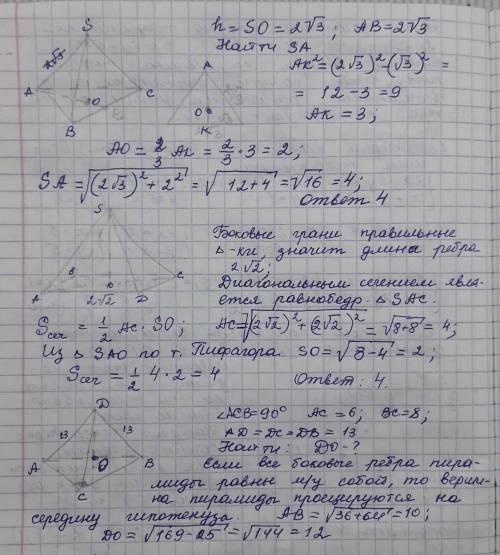 S
2√3
A
O
C
B
h = SO = 2√3; AB = 2√3
Найти SA
A
O
K
AK² = (2√3)² (√3)² =
= 12 - 3 = 9
AK = 3;
AO = 2/3 AK = 2/3 · 3 = 2;
SA = √(2√3)² + 2² = √12+4 = √16 = 4;
Ответ 4
S
A
B
C
O
D
2√2
Боковые грани правильные
Δ-ки, значит длина ребра
2√2;
Диагональным сечением явля-
ется равнобедр. Δ SAC.
Sсеч = 1/2 AC · SO; AC = √(2√2)² + (2√2)² = √8+8 = 4;
Из Δ SAO по т. Пифагора SO = √8-4 = 2;
Sсеч = 1/2 4 · 2 = 4
Ответ: 4.
D
13
13
A
O
B
C
∠ACB = 90° AC = 6; BC = 8;
AD = DC = DB = 13
Найти: DO - ?
Если все боковые ребра пира-
миды равны м/у собой, то верши-
на пирамиды проецируются на
середину гипотенузы. AB = √36+64 = 10;
DO = √169-25 = √144 = 12